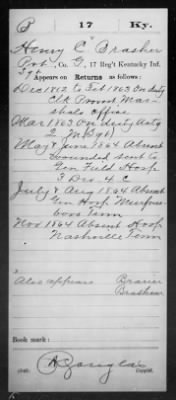 B 17 Ky.
Henry C Brasher
Pvt., Co. G, 17 Reg't Kentucky Inf.
Appears on Returns as follows:
Dec 1862 to Feb 1863 On duty
Clk Provost Mar
shals office
Mar 1863 On duty Actg
Q M Sgt
May & June 1864 Absent
wounded sent to
Gen Field Hosp
3 Div. 4. C
July & Aug 1864 Absent
Gen Hosp Murfrees
boro Tenn
Nov 1864 Absent Hosp
Nashville Tenn
Also appears Brasier
Brashear
Book mark:
Copyist.